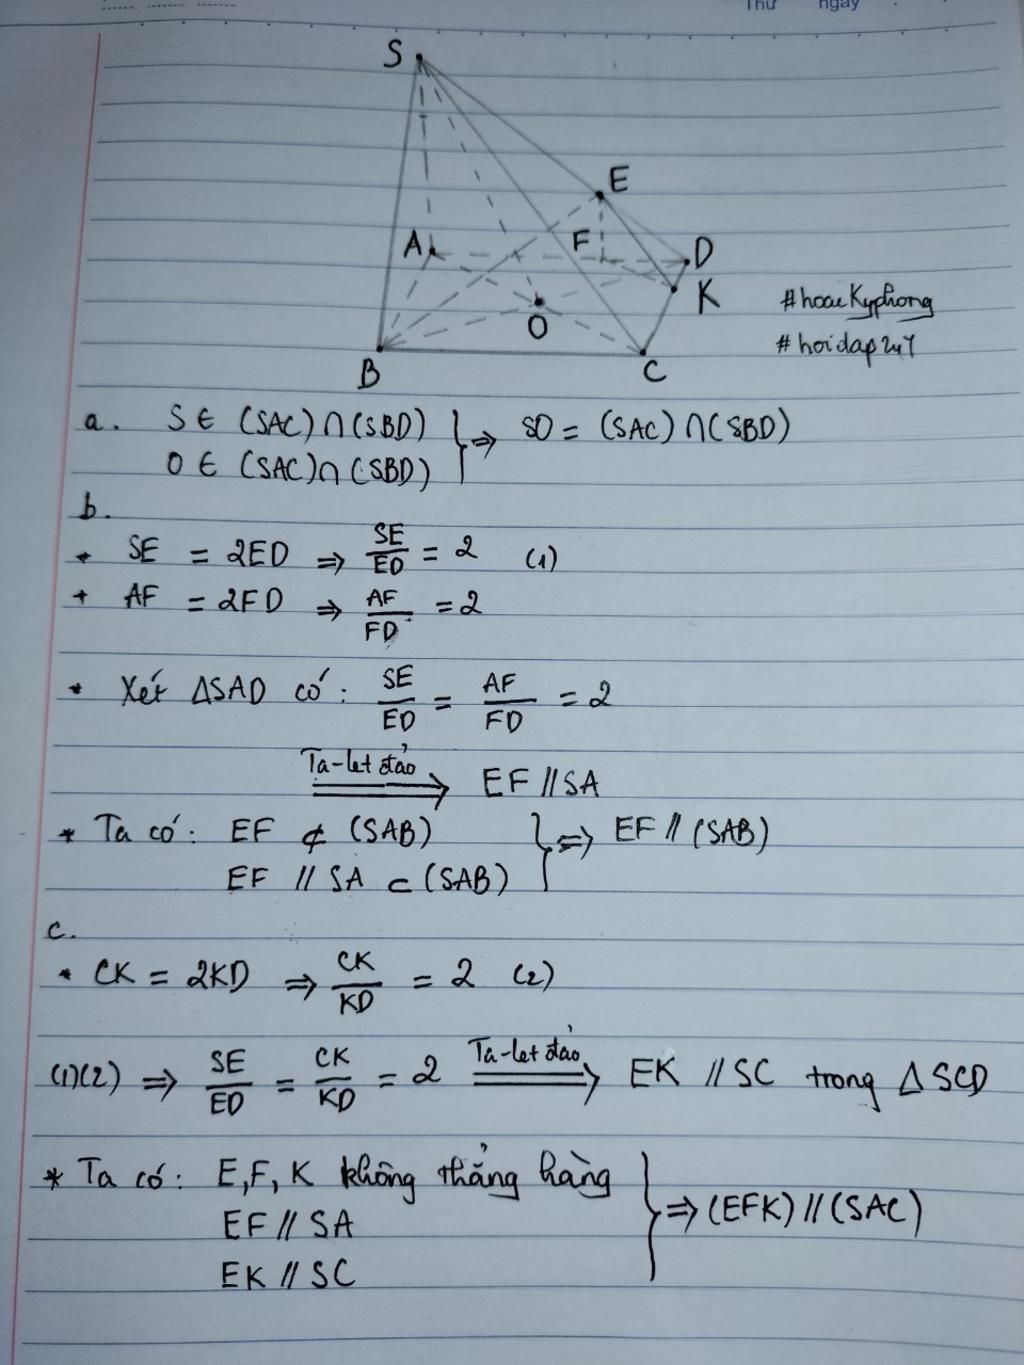 Thứ ngày
S
E
A F D
K
O
B C
#hoaeKyphong
#hoidap247
a. S ∈ (SAC) ∩ (SBD) } ⇒ SO = (SAC) ∩ (SBD)
O ∈ (SAC) ∩ (SBD)
b.
* SE = 2ED ⇒ SE/ED = 2 (1)
+ AF = 2FD ⇒ AF/FD = 2
* Xét ΔSAD có: SE/ED = AF/FD = 2
Ta-let đảo ⟹ EF // SA
* Ta có: EF ⊄ (SAB) } ⇒ EF // (SAB)
EF // SA ⊂ (SAB)
c.
* CK = 2KD ⇒ CK/KD = 2 (2)
(1)(2) ⇒ SE/ED = CK/KD = 2 Ta-let đảo ⟹ EK // SC trong Δ SCD
* Ta có: E, F, K không thẳng hàng } ⇒ (EFK) // (SAC)
EF // SA
EK // SC